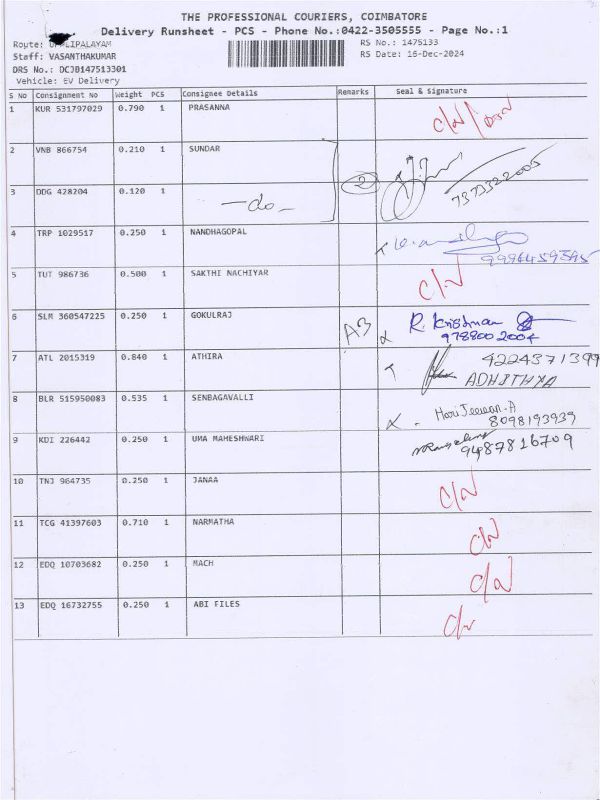 THE PROFESSIONAL COURIERS, COIMBATORE
Delivery Runsheet - PCS - Phone No.:0422-3505555 - Page No.:1
Route: UPPLIPALAYAM RS No.: 1475133
Staff: VASANTHAKUMAR RS Date: 16-Dec-2024
DRS No.: DCJB147513301
Vehicle: EV Delivery
S No Consignment No Weight PCS Consignee Details Remarks Seal & Signature
1 KUR 531797029 0.790 1 PRASANNA C/N
2 VNB 866754 0.210 1 SUNDAR
3 DDG 428204 0.120 1 -do- 2 7373322005
4 TRP 1029517 0.250 1 NANDHAGOPAL
5 TUT 986736 0.500 1 SAKTHI NACHIYAR C/N
6 SLM 360547225 0.250 1 GOKULRAJ A3 R. Krishnan 9788002004
7 ATL 2015319 0.840 1 ATHIRA 4224371399
ADHITHYA
8 BLR 515950083 0.535 1 SENBAGAVALLI Hari Jeevan-A
8098193939
9 KDI 226442 0.250 1 UMA MAHESHWARI 9487816709
10 TNJ 964735 0.250 1 JANAA C/N
11 TCG 41397603 0.710 1 NARMATHA C/N
12 EDQ 10703682 0.250 1 MACH C/N
13 EDQ 16732755 0.250 1 ABI FILES C/N